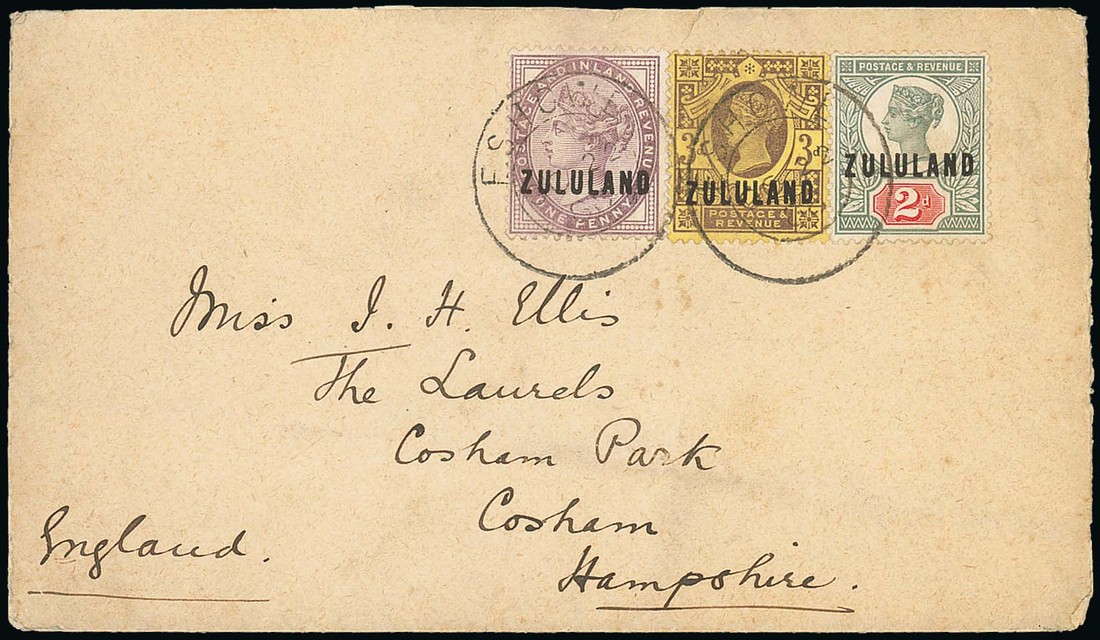 POSTAGE AND INLAND REVENUE
ZULULAND
ONE PENNY
3d 3d
ZULULAND
POSTAGE &
REVENUE
POSTAGE & REVENUE
ZULULAND
2d
Miss I. H. Ellis
The Laurels
Cosham Park
Cosham
Hampshire.
England.